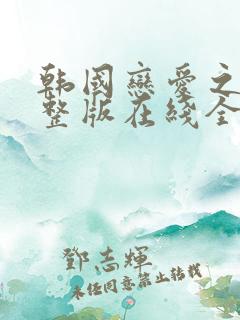 韩国戀愛之
整版在綫全
鄧志輝
未经同意禁止转载